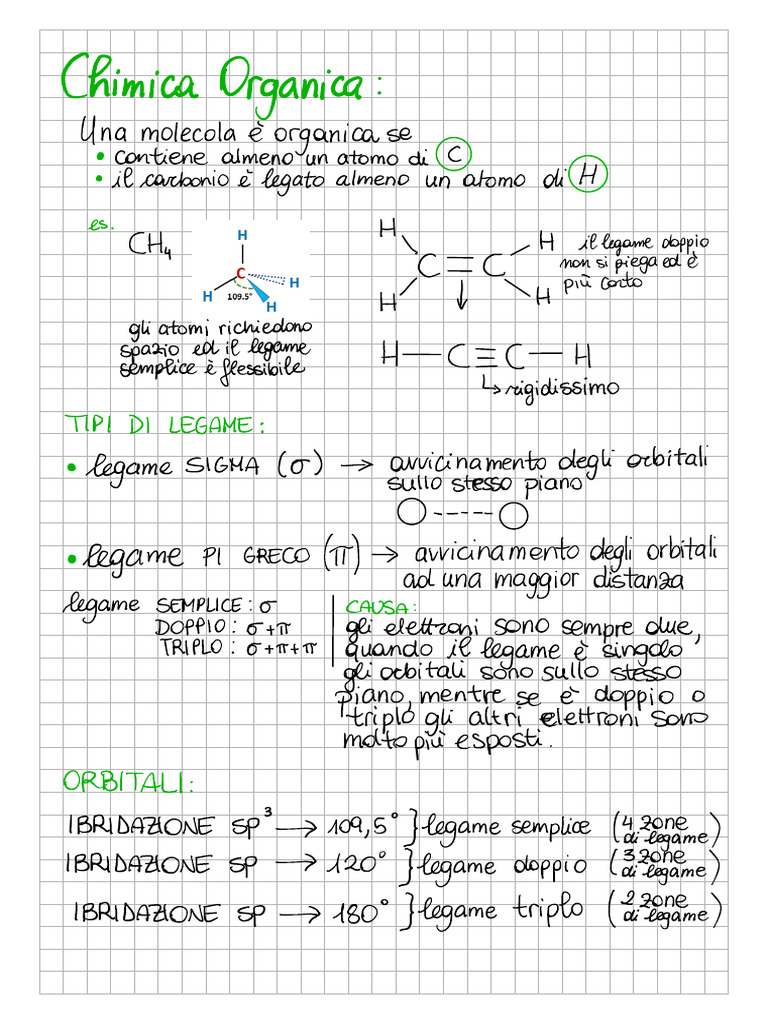 Chimica Organica:
Una molecola è organica se
• contiene almeno un atomo di C
• il carbonio è legato almeno un atomo di H
es.
CH₄
H
C
H
H
H
109.5°
gli atomi richiedono
spazio ed il legame
semplice è flessibile
H
H
C = C
H
H
il legame doppio
non si piega ed è
più corto
H — C ≡ C — H
↳ rigidissimo
TIPI DI LEGAME:
• legame SIGMA (σ) → avvicinamento degli orbitali
sullo stesso piano
• legame PI GRECO (π) → avvicinamento degli orbitali
ad una maggior distanza
legame SEMPLICE: σ
DOPPIO: σ+π
TRIPLO: σ+π+π
CAUSA:
gli elettroni sono sempre due,
quando il legame è singolo
gli orbitali sono sullo stesso
piano, mentre se è doppio o
triplo gli altri elettroni sono
molto più esposti.
ORBITALI:
IBRIDAZIONE SP³ → 109,5° } legame semplice (4 zone di legame)
IBRIDAZIONE SP → 120° } legame doppio (3 zone di legame)
IBRIDAZIONE SP → 180° } legame triplo (2 zone di legame)